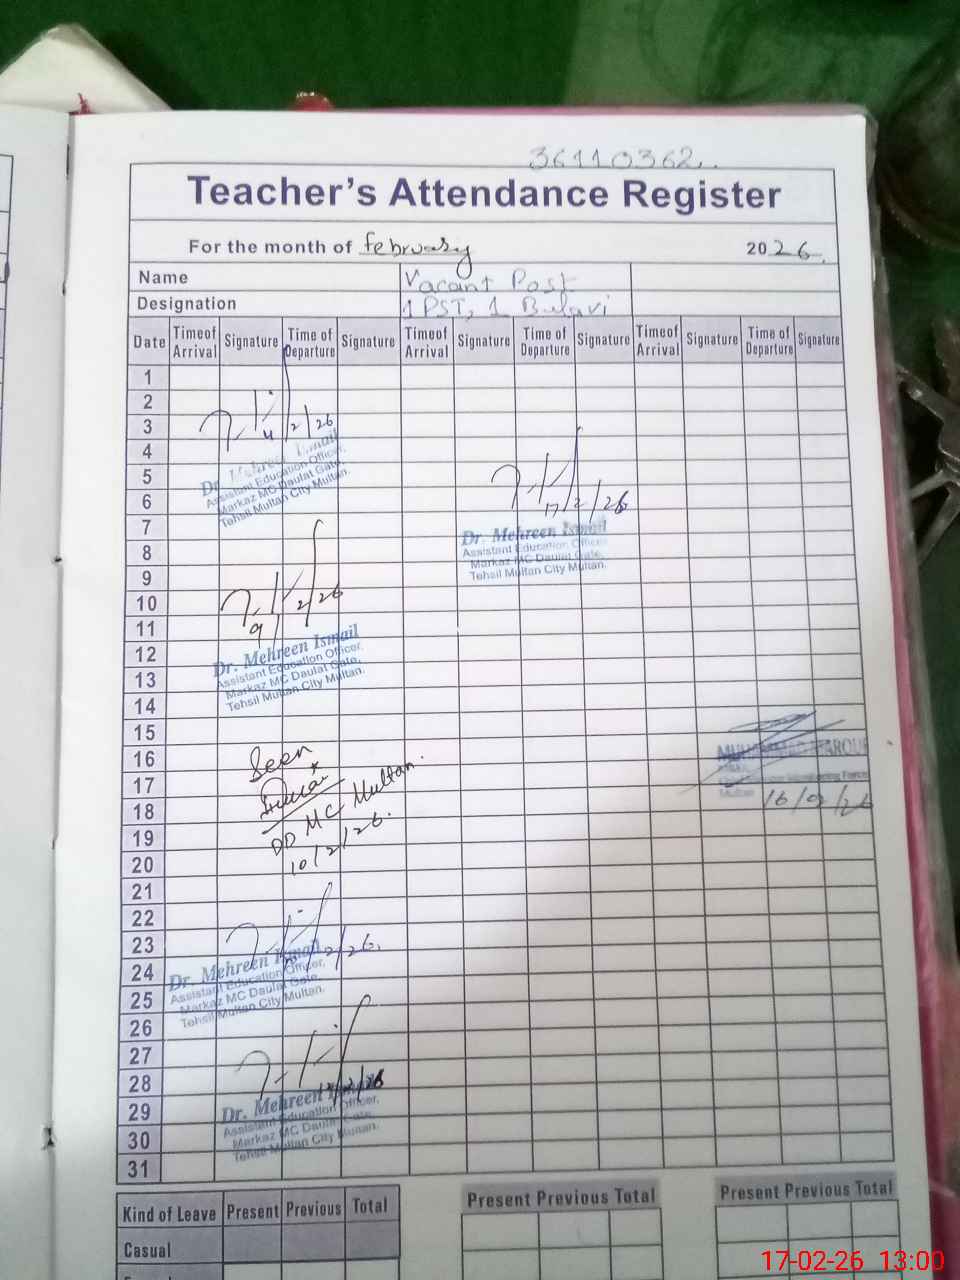 36110362..
Teacher's Attendance Register
For the month of February 2026.
Name Vacant Post
Designation 1 PST, 1 Bulavi
Date Timeof Arrival Signature Time of Departure Signature Timeof Arrival Signature Time of Departure Signature Timeof Arrival Signature Time of Departure Signature
1
2
3
4/2/26
4
Dr. Mehreen Ismail
5
Assistant Education Officer,
Markaz MC Daulat Gate,
Tehsil Multan City Multan.
6
17/2/26
7
Dr. Mehreen Ismail
8
Assistant Education Officer
Markaz MC Daulat Gate,
Tehsil Multan City Multan.
9
10
9/2/26
11
12
Dr. Mehreen Ismail
Assistant Education Officer,
13
Markaz MC Daulat Gate,
Tehsil Multan City Multan.
14
15
16
Seen
17
DD MC Multan.
18
16/2/26
19
10/2/26.
20
21
22
23
2/26.
24
Dr. Mehreen Ismail
Assistant Education Officer,
25
Markaz MC Daulat Gate,
Tehsil Multan City Multan.
26
27
28
2/26
29
Dr. Mehreen
Assistant Education Officer,
30
Markaz MC Daulat Gate,
Tehsil Multan City Multan.
31
Kind of Leave Present Previous Total Present Previous Total Present Previous Total
Casual
17-02-26 13:00